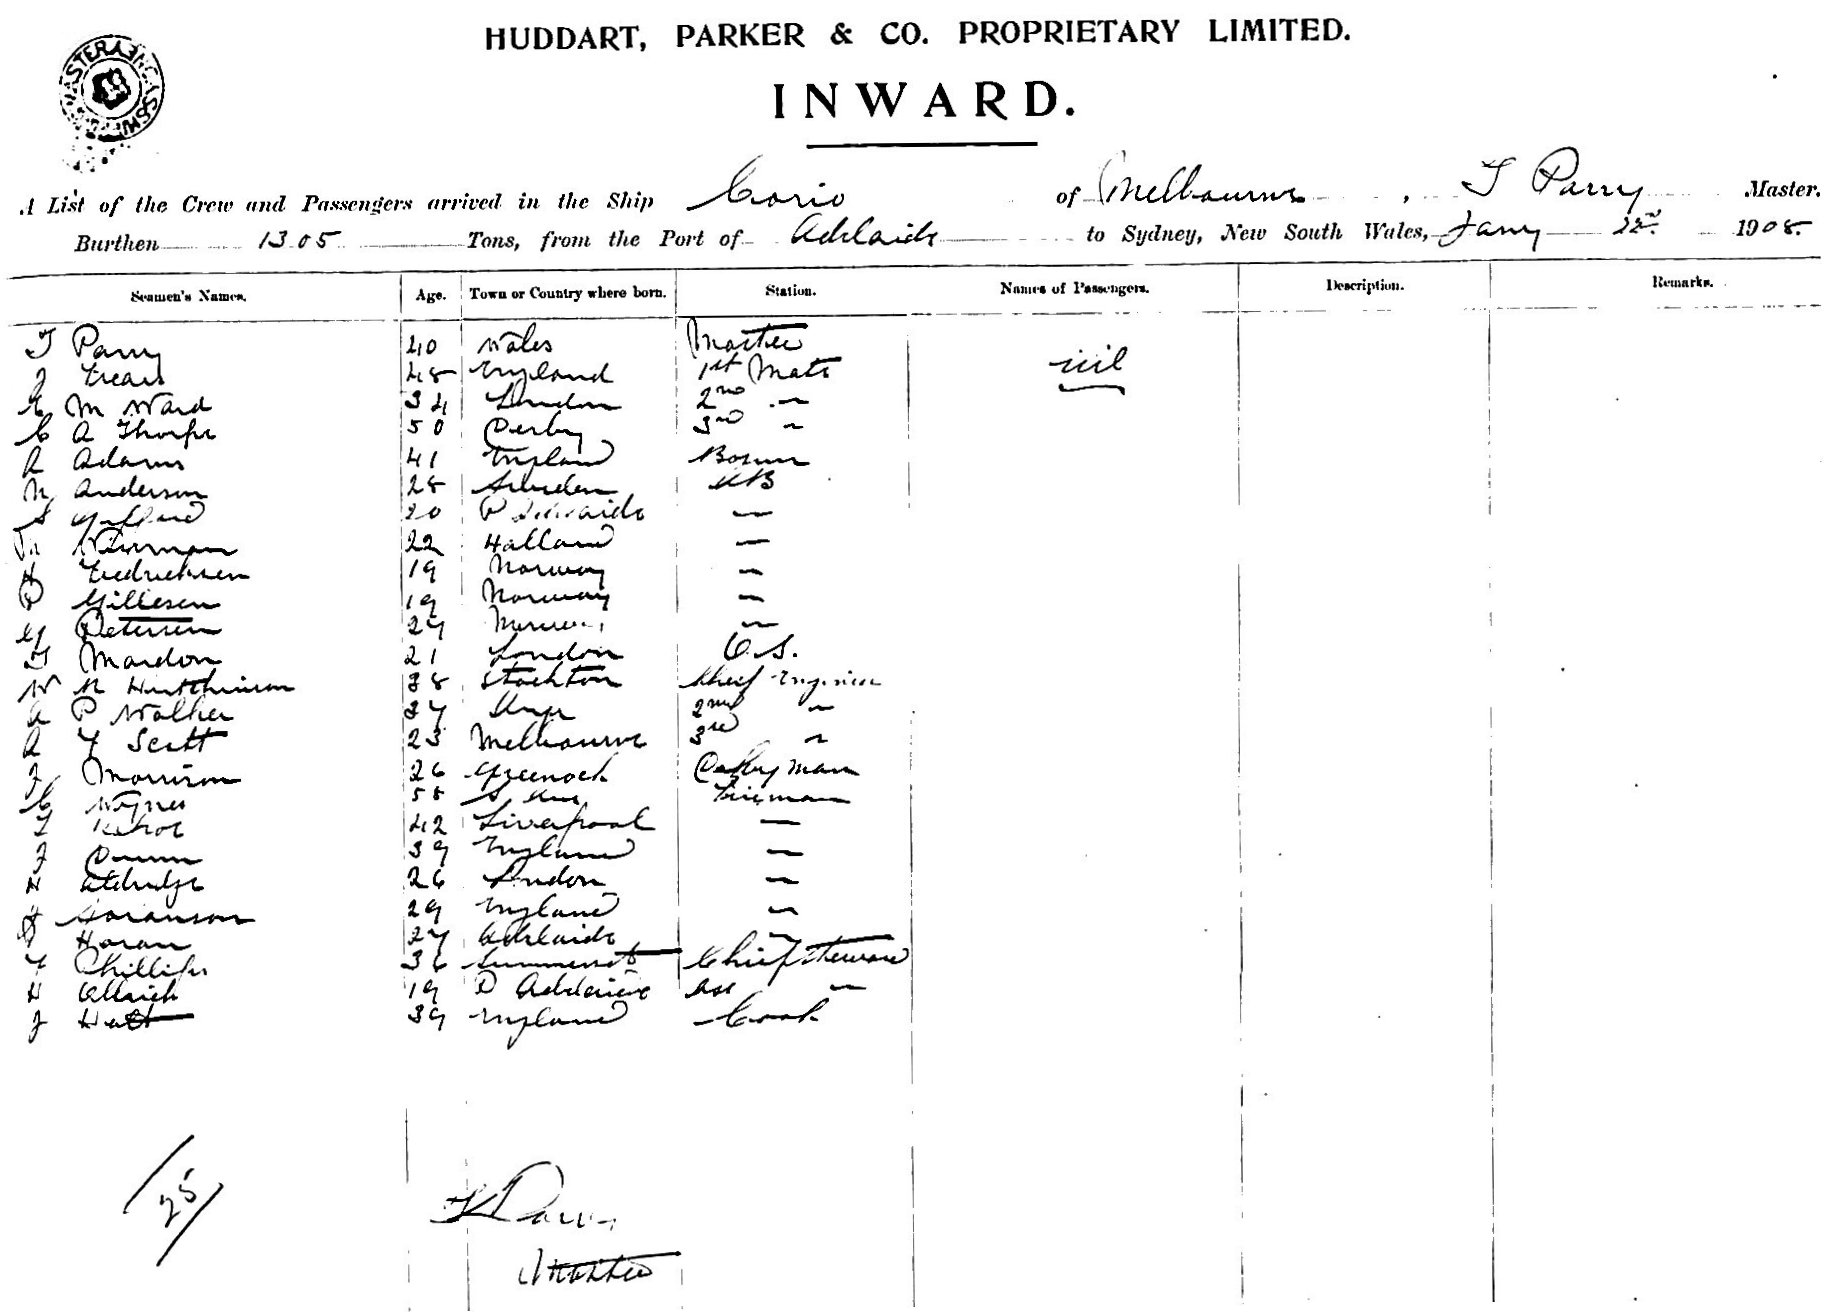 HUDDART, PARKER & CO. PROPRIETARY LIMITED.
INWARD.
A List of the Crew and Passengers arrived in the Ship Corio of Melbourne, T Parry Master.
Burthen 1305 Tons, from the Port of Adelaide to Sydney, New South Wales, Jany 22nd 1908.
Seamen's Names. Age. Town or Country where born. Station. Names of Passengers. Description. Remarks.
T Parry 40 Wales Master nil
J 48 England 1st Mate
M Ward 34 London 2nd "
C A Thorpe 50 Derby 3rd "
A Adams 41 England Bosun
N Anderson 28 Sweden AB
20 P Adelaide "
22 Holland "
H Fredricksen 19 Norway "
19 Norway "
Petersen 24 "
T Mardon 21 London O.S.
W R Hutchinson 38 Stockton Chief Engineer
A P Walker 2nd "
A Y Scott 23 Melbourne 3rd "
J Morrison 26 Greenock Dkyman
C 58 Fireman
T Kehoe 42 Liverpool "
J 39 England "
H Aldridge 26 London "
Soranson 29 England "
Horan 24 Adelaide "
Phillips 36 Chief Steward
H 19 P Adelaide Asst "
J Holt 39 England Cook
25
T Parry
Master